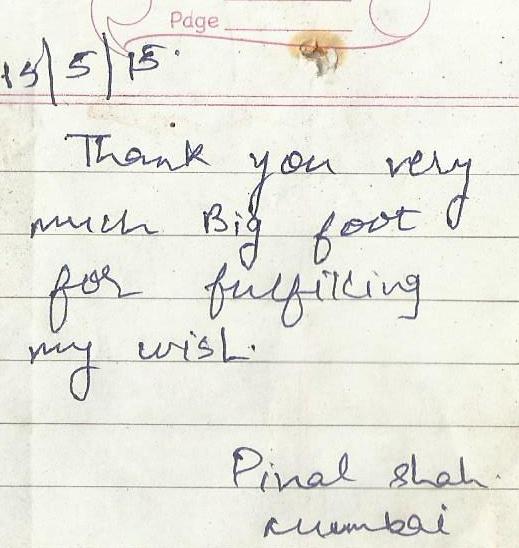 Page
15/5/15.
Thank you very
much Big foot
for fulfilling
my wish.
Pinal shah.
Mumbai